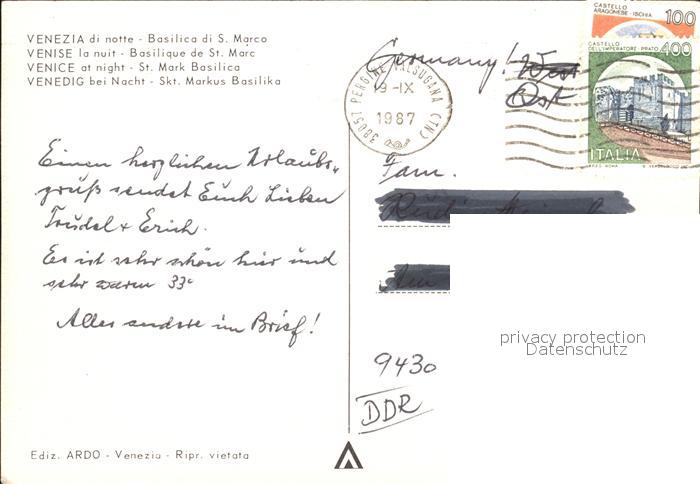 VENEZIA di notte - Basilica di S. Marco
VENISE la nuit - Basilique de St. Marc
VENICE at night - St. Mark Basilica
VENEDIG bei Nacht - Skt. Markus Basilika
CASTELLO
ARAGONESE - ISCHIA
100
CASTELLO
DELL'IMPERATORE - PRATO
400
ITALIA
38057 PERGINE VALSUGANA (TN)
19-IX
1987
Germany! West
Ost
Einen herzlichen Urlaubs-
gruß sendet Euch Lieben
Trudel + Erich.
Es ist sehr schön hier und
sehr warm 33°
Alles andere im Brief!
Fam.
privacy protection
Datenschutz
9430
DDR
Ediz. ARDO - Venezia - Ripr. vietata